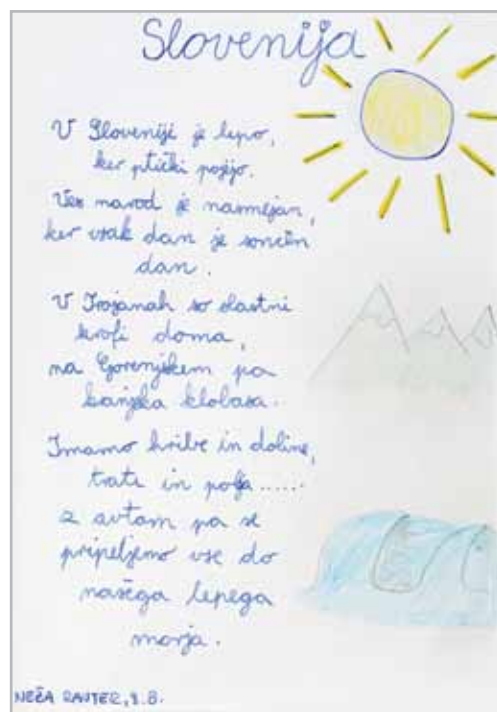 Slovenija
V Sloveniji je lepo,
ker ptički pojejo.
Ves narod je nasmejan,
ker vsak dan je sončen
dan.
V Trojanah so slastni
krofi doma,
na Gorenjskem pa
kranjska klobasa.
Imamo hribe in doline,
trate in polja......
z avtom pa se
pripeljemo vse do
našega lepega
morja.
NEŽA RAUTER, 8.B.